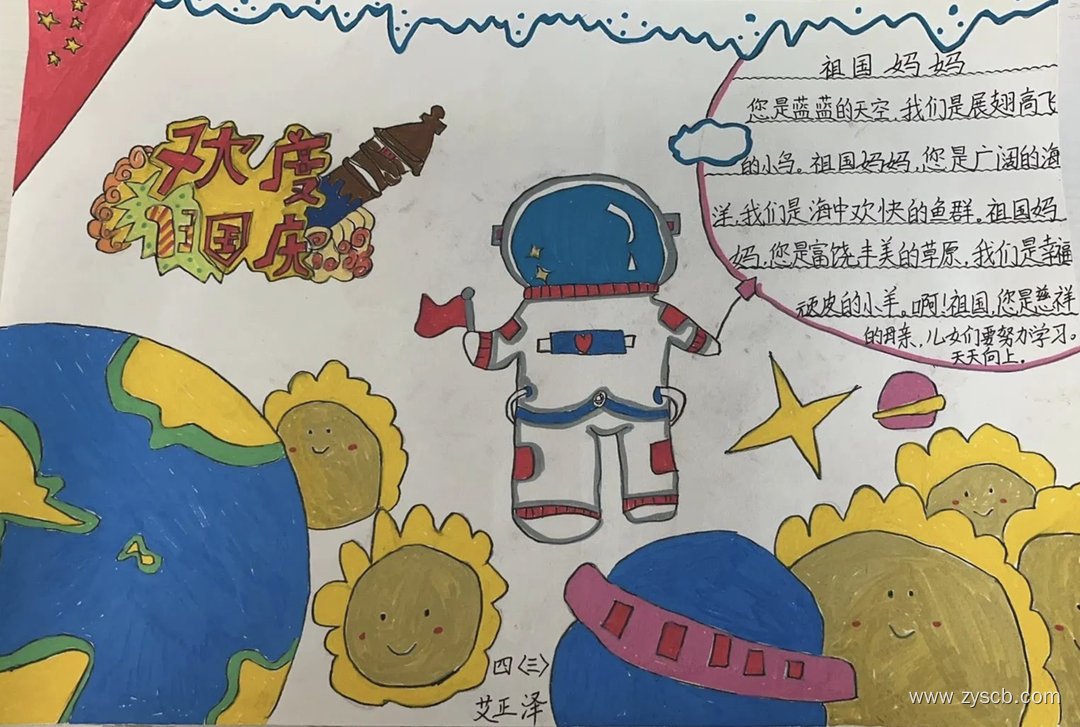 欢度
国庆
祖国妈妈
您是蓝蓝的天空,我们是展翅高飞
的小鸟。祖国妈妈,您是广阔的海
洋,我们是海中欢快的鱼群。祖国妈
妈,您是富饶丰美的草原,我们是幸福
顽皮的小羊。啊!祖国,您是慈祥
的母亲,儿女们要努力学习。
天天向上。
四〈三〉
艾正泽
www.zyscb.com